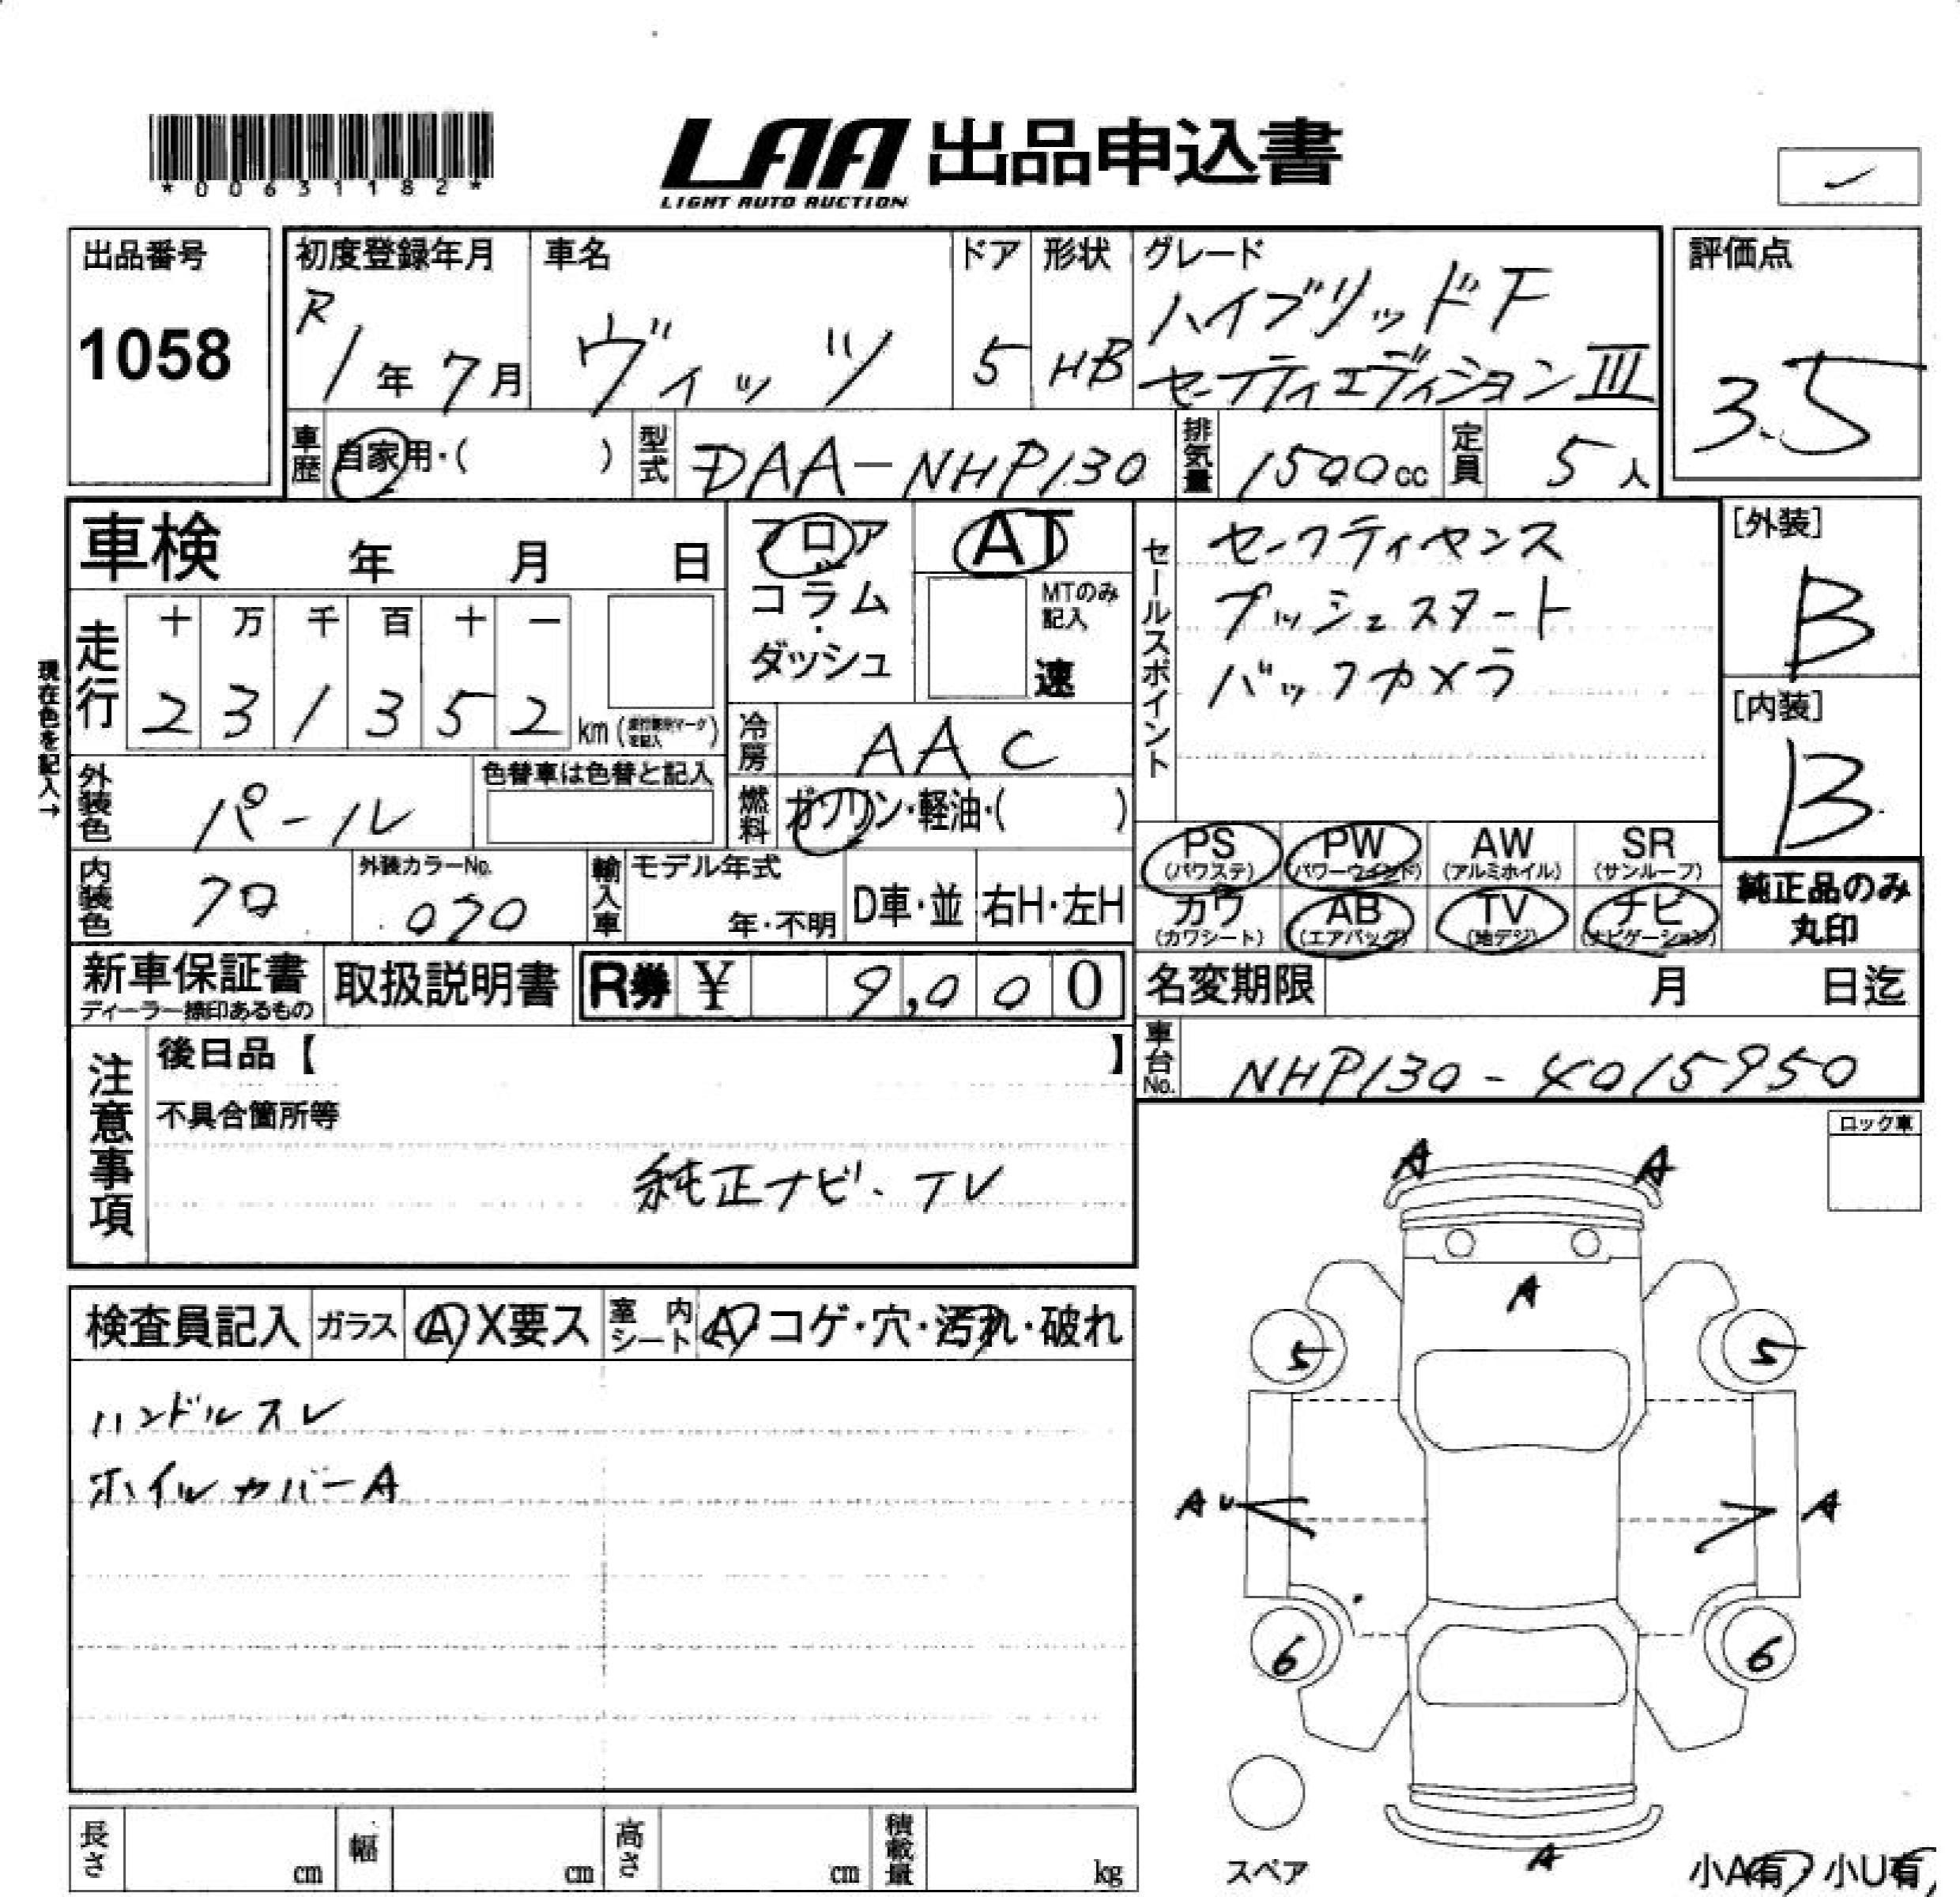 *00631182*
LAA 出品申込書
LIGHT AUTO AUCTION
出品番号
1058
初度登録年月
R
1年7月
車名
ヴィッツ
ドア
5
形状
HB
グレード
ハイブリッドF
セーフティエディションIII
評価点
3.5
車歴
自家用・( )
型式
DAA-NHP130
排気量
1500cc
定員
5人
車検 年 月 日
フロア
コラム
・
ダッシュ
AT
MTのみ
記入
速
セールスポイント
セーフティセンス
プッシュスタート
バックカメラ
[外装]
B
[内装]
B
現在色を記入→
走行
十 万 千 百 十 一
2 3 1 3 5 2 km
冷房
AAC
燃料
ガソリン・軽油・( )
外装色
パール
色替車は色替と記入
内装色
クロ
外装カラーNo.
070
輸入車
モデル年式
年・不明
D車・並
右H・左H
PS
(パワステ)
PW
(パワーウインド)
AW
(アルミホイル)
SR
(サンルーフ)
カワ
(カワシート)
AB
(エアバッグ)
TV
(地デジ)
ナビ
(ナビゲーション)
純正品のみ
丸印
新車保証書
ディーラー捺印あるもの
取扱説明書
R券 ¥ 9,000
名変期限 月 日迄
車台No.
NHP130-4015950
注意事項
後日品【 】
不具合箇所等
純正ナビ・TV
ロック車
検査員記入
ガラス
A X要ス
室内シート
A コゲ・穴・汚れ・破れ
ハンドルスレ
ホイルカバーA
A A
A
5 5
AU A
6 6
A
スペア
小A有 小U有
長さ cm
幅 cm
高さ cm
積載量 kg